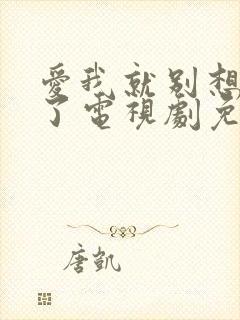 愛我就别想
了電視劇免
唐凱